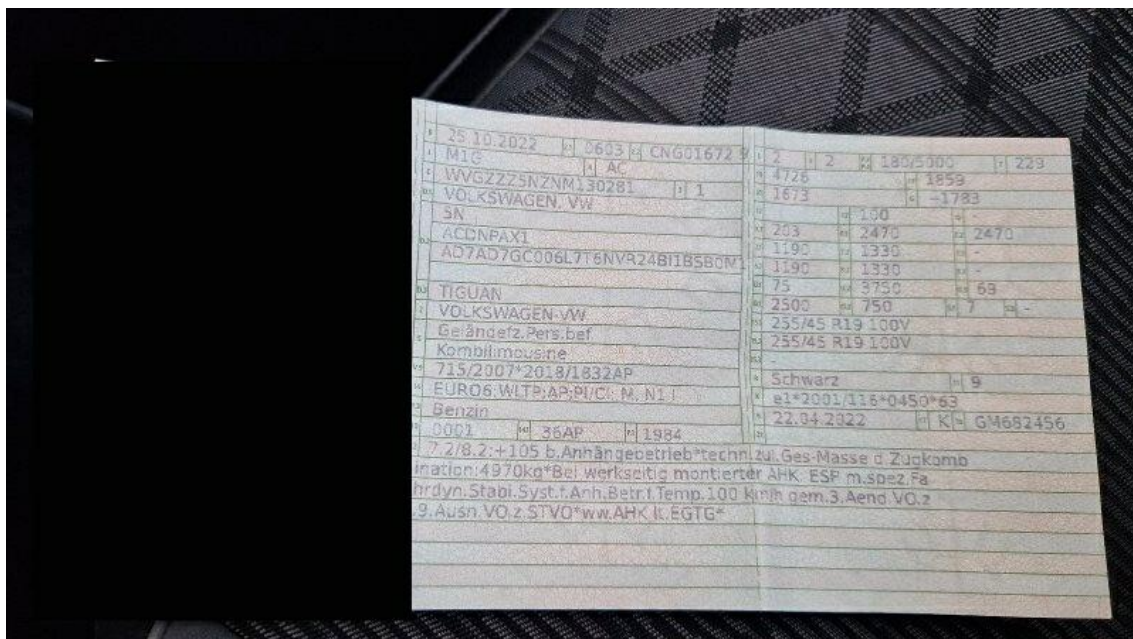 25.10.2022 0603 CNG01672 9
M1G AC
WVGZZZ5NZNM130281 1
VOLKSWAGEN, VW
5N
ACDNPAX1
AD7AD7GC006L7T6NVR24BI1BSB0M1
TIGUAN
VOLKSWAGEN-VW
Geländefz.Pers.bef
Kombilimousine
715/2007*2018/1832AP
EURO6;WLTP;AP;PI/CI; M, N1 I
Benzin
0001 36AP 1984
2 2 180/5000 229
4726 1859
1673 -1783
100 -
203 2470 2470
1190 1330 -
1190 1330 -
75 3750 63
2500 750 7 -
255/45 R19 100V
255/45 R19 100V
-
Schwarz 9
e1*2001/116*0450*63
22.04.2022 K GM682456
7.2/8.2:+105 b.Anhängebetrieb*techn.zul.Ges-Masse d.Zugkomb
ination:4970kg*Bei werkseitig montierter AHK: ESP m.spez.Fa
hrdyn.Stabi.Syst.f.Anh.Betr.f.Temp.100 km/h gem.3.Aend.VO.z
.9.Ausn.VO.z.STVO*ww.AHK lt.EGTG*